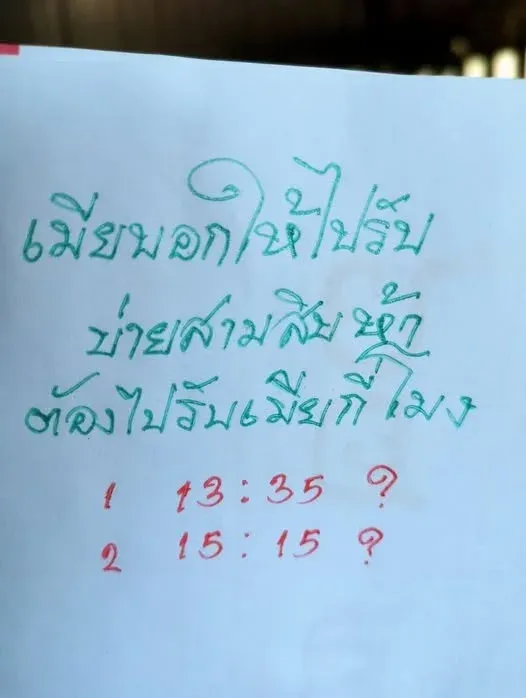 เมียบอกให้ไปรับ
บ่ายสามสิบห้า
ต้องไปรับเมียกี่โมง
1 13:35 ?
2 15:15 ?